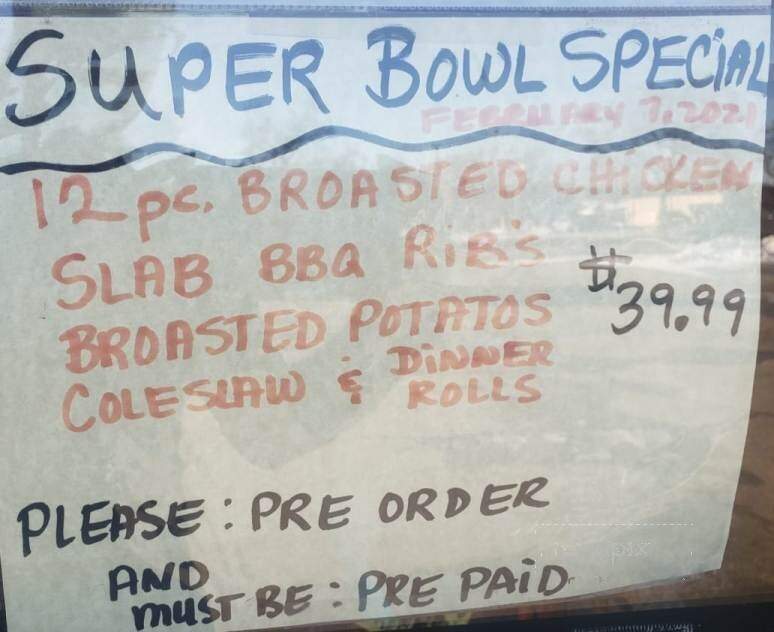 SUPER BOWL SPECIAL
FEBRUARY 7, 2021
12 pc. BROASTED CHICKEN
SLAB BBQ RIB'S
$39.99
BROASTED POTATOS
COLESLAW & DINNER ROLLS
PLEASE: PRE ORDER
AND
MUST BE: PRE PAID